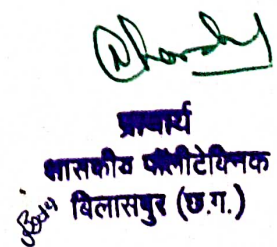 प्राचार्य
शासकीय पॉलीटेक्निक
बिलासपुर (छ.ग.)